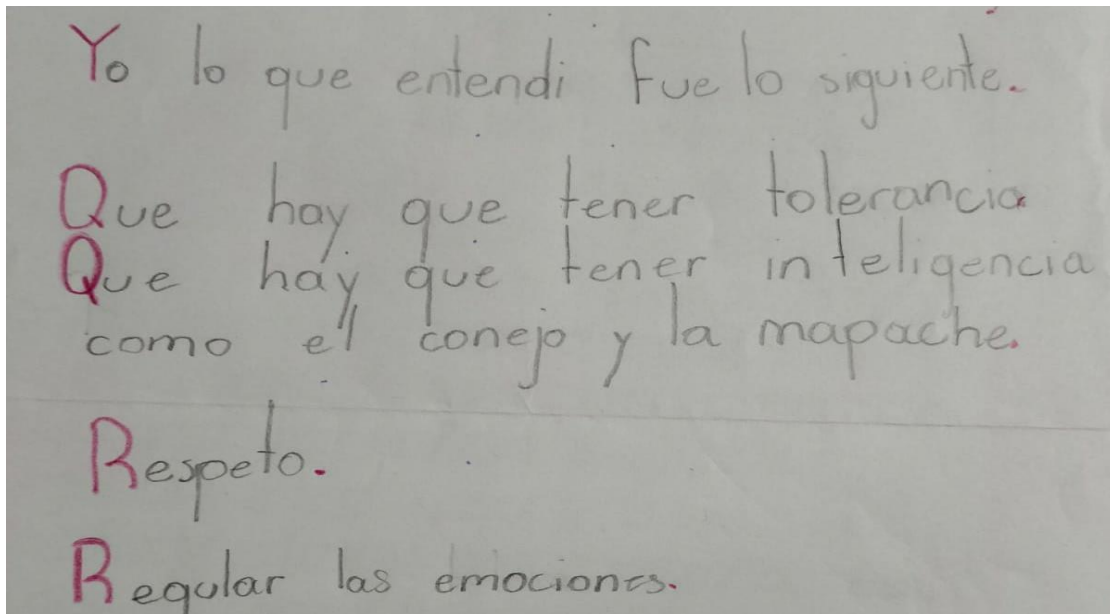 Yo lo que entendi fue lo siguiente.
Que hay que tener tolerancia
Que hay que tener inteligencia
como el conejo y la mapache.
Respeto.
Regular las emociones.